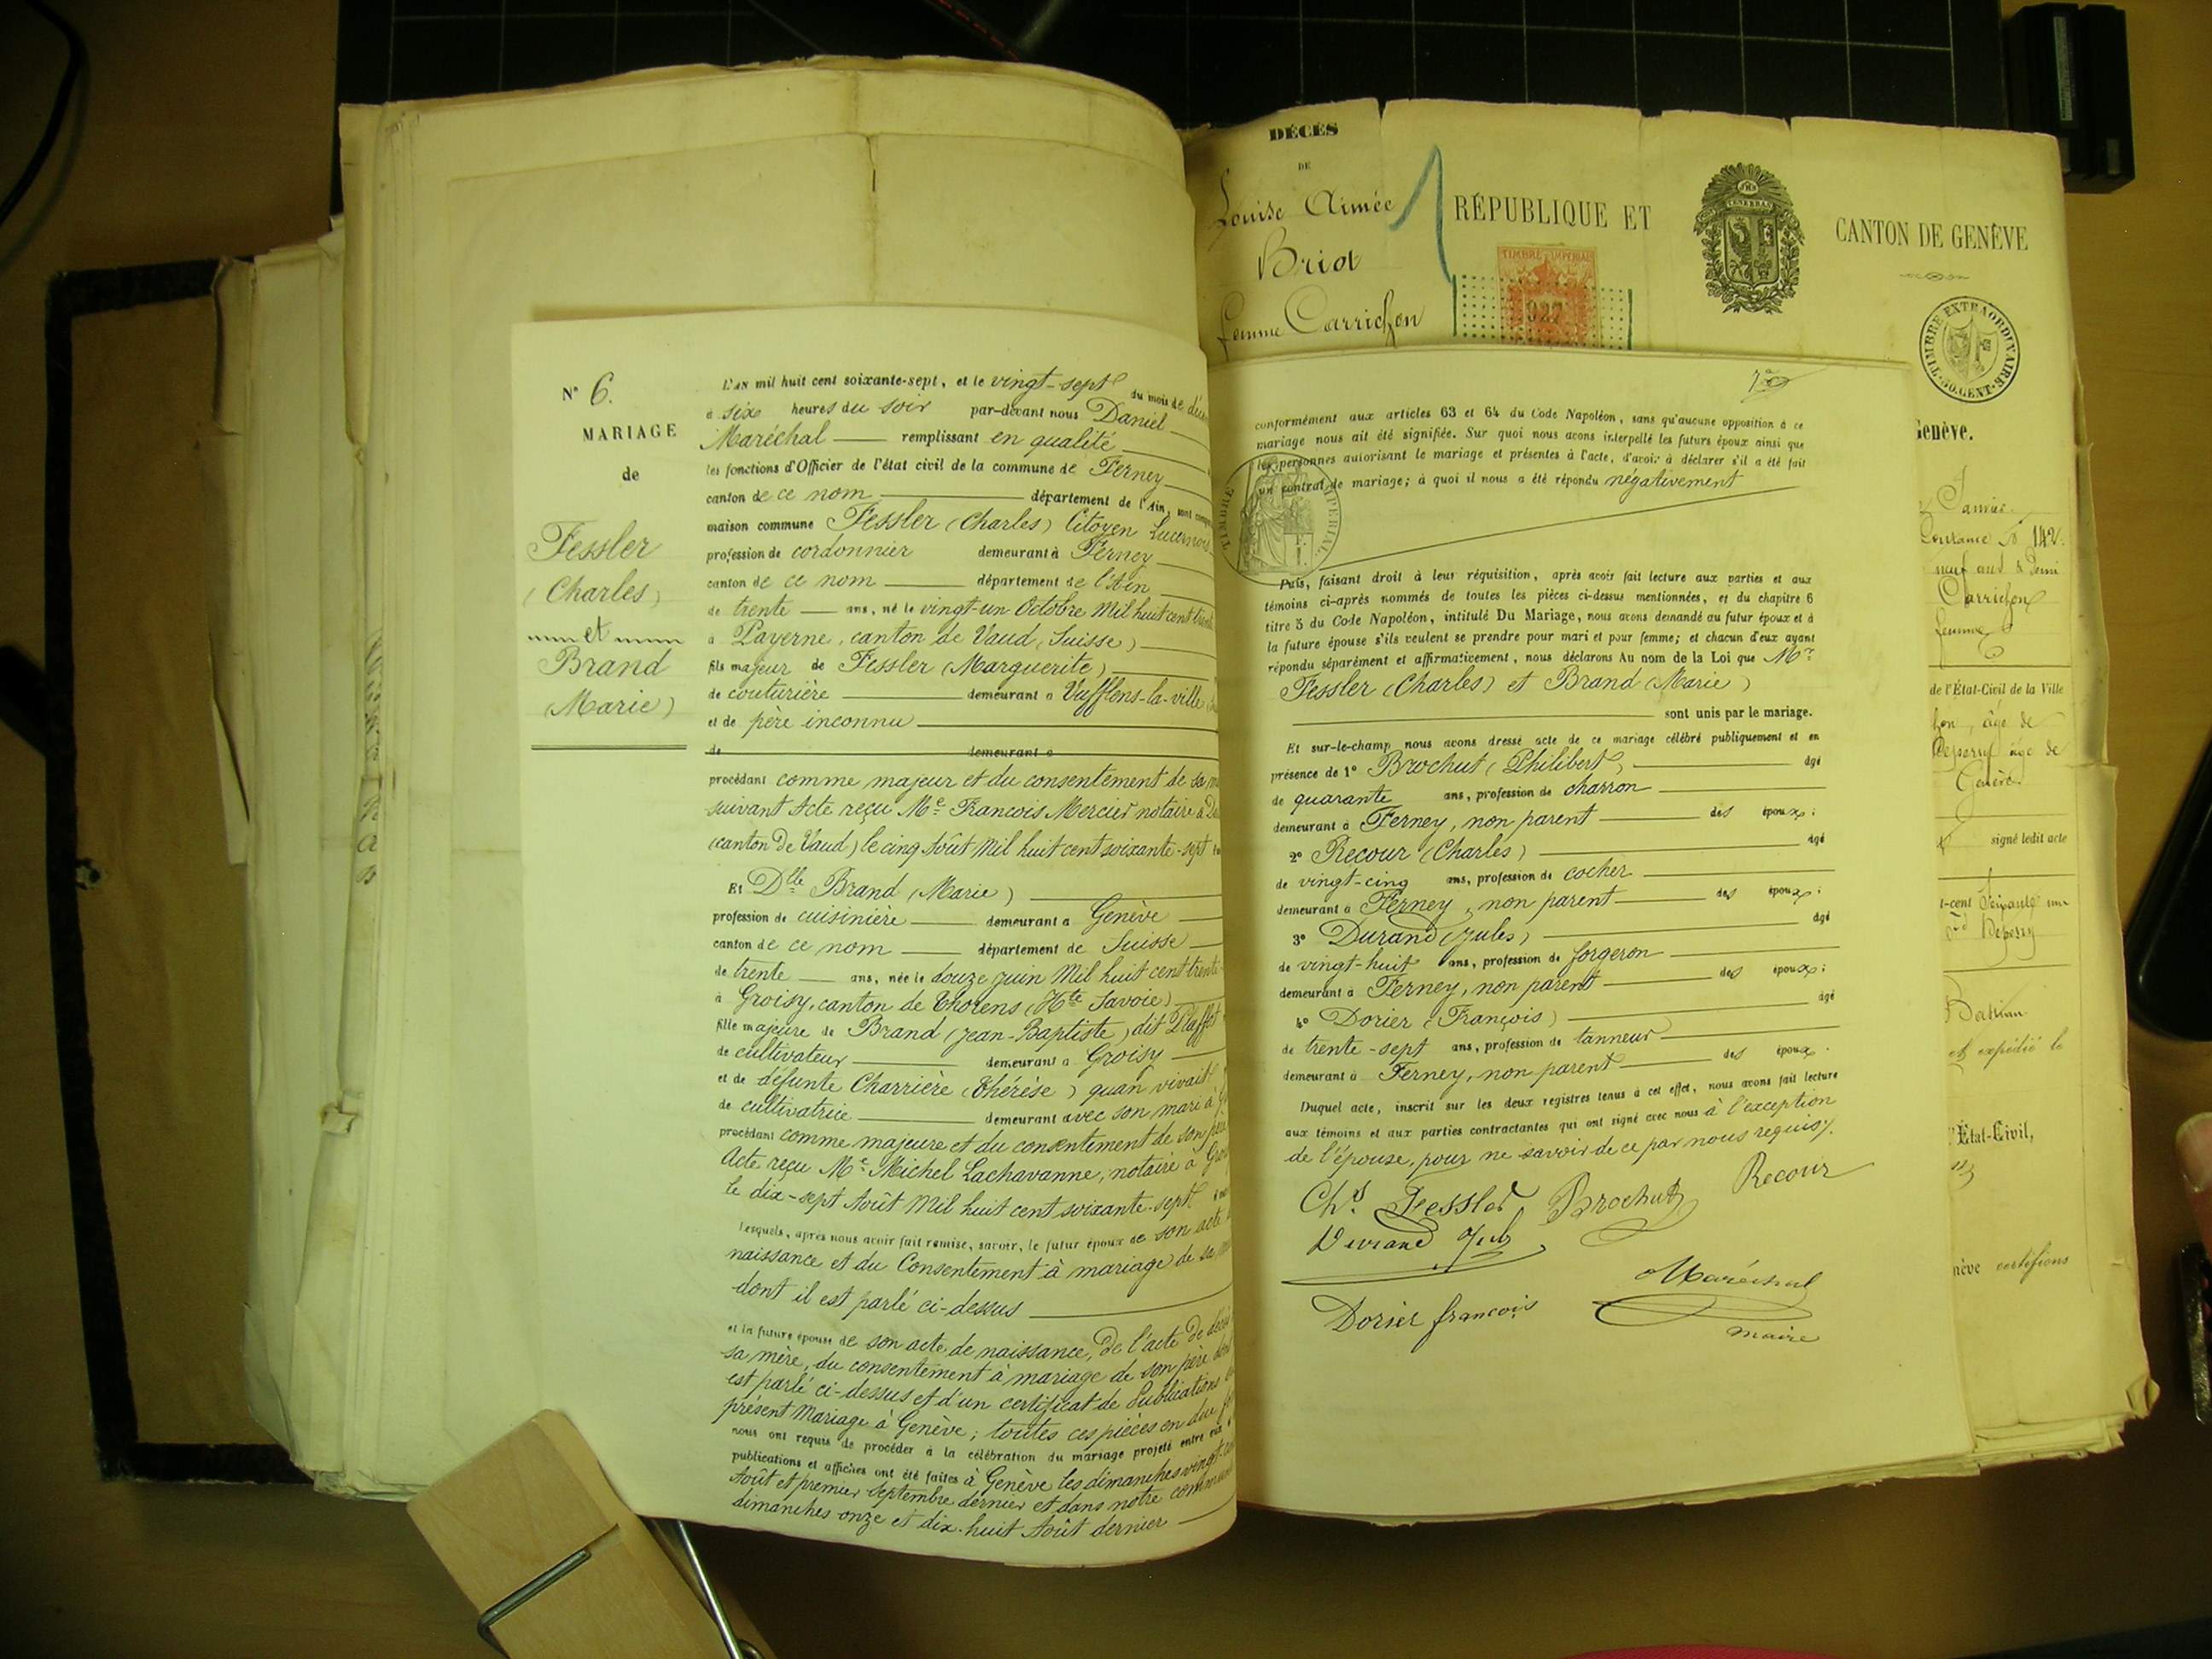 N° 6.
MARIAGE
de
Fessler
(Charles)
et
Brand
(Marie)
L'AN mil huit cent soixante-sept, et le vingt-sept du mois de
à six heures du soir par-devant nous Daniel
Maréchal remplissant en qualité
les fonctions d'Officier de l'état civil de la commune de Ferney
canton de ce nom département de l'Ain, sont
maison commune Fessler (Charles) Citoyen Lucernois
profession de cordonnier demeurant à Ferney
canton de ce nom département de l'Ain
de trente ans, né le vingt-un Octobre Mil huit cent
à Payerne, canton de Vaud, (Suisse)
fils majeur de Fessler (Marguerite)
de couturière demeurant à Vufflens-la-ville
et de père inconnu
de demeurant à
procédant comme majeur et du consentement de sa
suivant Acte reçu Me François Mercier notaire à
(canton de Vaud) le cinq Août Mil huit cent soixante-sept
Et Dlle Brand (Marie)
profession de cuisinière demeurant à Genève
canton de ce nom département de Suisse
de trente ans, née le douze juin Mil huit cent trente
à Groisy, canton de Thorens (Hte Savoie)
fille majeure de Brand (Jean-Baptiste) dit
de cultivateur demeurant à Groisy
et de défunte Charrière (Thérèse) quan vivait
de cultivatrice demeurant avec son mari à
procédant comme majeure et du consentement de son père
Acte reçu Me Michel Lachavanne, notaire à
le dix-sept Août Mil huit cent soixante-sept
Lesquels, après nous avoir fait remise, savoir, le futur époux de son acte
naissance et du Consentement à mariage de sa
dont il est parlé ci-dessus
et la future épouse de son acte de naissance, de l'acte de décès
sa mère, du consentement à mariage de son père dont
est parlé ci-dessus et d'un certificat de Publications
présent Mariage à Genève; toutes ces pièces en due
nous ont requis de procéder à la célébration du mariage projeté entre eux
publications et affiches ont été faites à Genève les dimanches
Août et premier Septembre dernier et dans notre commune
dimanches onze et dix-huit Août dernier
DÉCÈS
DE
Louise Aimée
Briot
femme Carrichon
RÉPUBLIQUE ET CANTON DE GENÈVE
TIMBRE IMPÉRIAL
927
TIMBRE EXTRAORDINAIRE
50. CENT.
conformément aux articles 63 et 64 du Code Napoléon, sans qu'aucune opposition à ce
mariage nous ait été signifiée. Sur quoi nous avons interpellé les futurs époux ainsi que
les personnes autorisant le mariage et présentes à l'acte, d'avoir à déclarer s'il a été fait
un contrat de mariage; à quoi il nous a été répondu négativement
TIMBRE IMPÉRIAL
Puis, faisant droit à leur réquisition, après avoir fait lecture aux parties et aux
témoins ci-après nommés de toutes les pièces ci-dessus mentionnées, et du chapitre 6
titre 5 du Code Napoléon, intitulé Du Mariage, nous avons demandé au futur époux et à
la future épouse s'ils veulent se prendre pour mari et pour femme; et chacun d'eux ayant
répondu séparément et affirmativement, nous déclarons Au nom de la Loi que Mr
Fessler (Charles) et Brand (Marie)
sont unis par le mariage.
Et sur-le-champ nous avons dressé acte de ce mariage célébré publiquement et en
présence de 1° Brochut (Philibert) âgé
de quarante ans, profession de charron
demeurant à Ferney, non parent des époux;
2° Recour (Charles) âgé
de vingt-cinq ans, profession de cocher
demeurant à Ferney, non parent des époux;
3° Durand (Jules) âgé
de vingt-huit ans, profession de forgeron
demeurant à Ferney, non parent des époux;
4° Dorier (François) âgé
de trente-sept ans, profession de tanneur
demeurant à Ferney, non parent des époux.
Duquel acte, inscrit sur les deux registres tenus à cet effet, nous avons fait lecture
aux témoins et aux parties contractantes qui ont signé avec nous à l'exception
de l'épouse, pour ne savoir de ce par nous requis.
Chs Fessler Brochut Recour
Durand Jules
Maréchal
Dorier françois
maire
Genève.
Coutance No 142
neuf ans & demi
Carrichon
femme
de l'État-Civil de la Ville
âge de
âgé de
Genève
signé ledit acte
et expédié le
l'État-Civil,
certifions